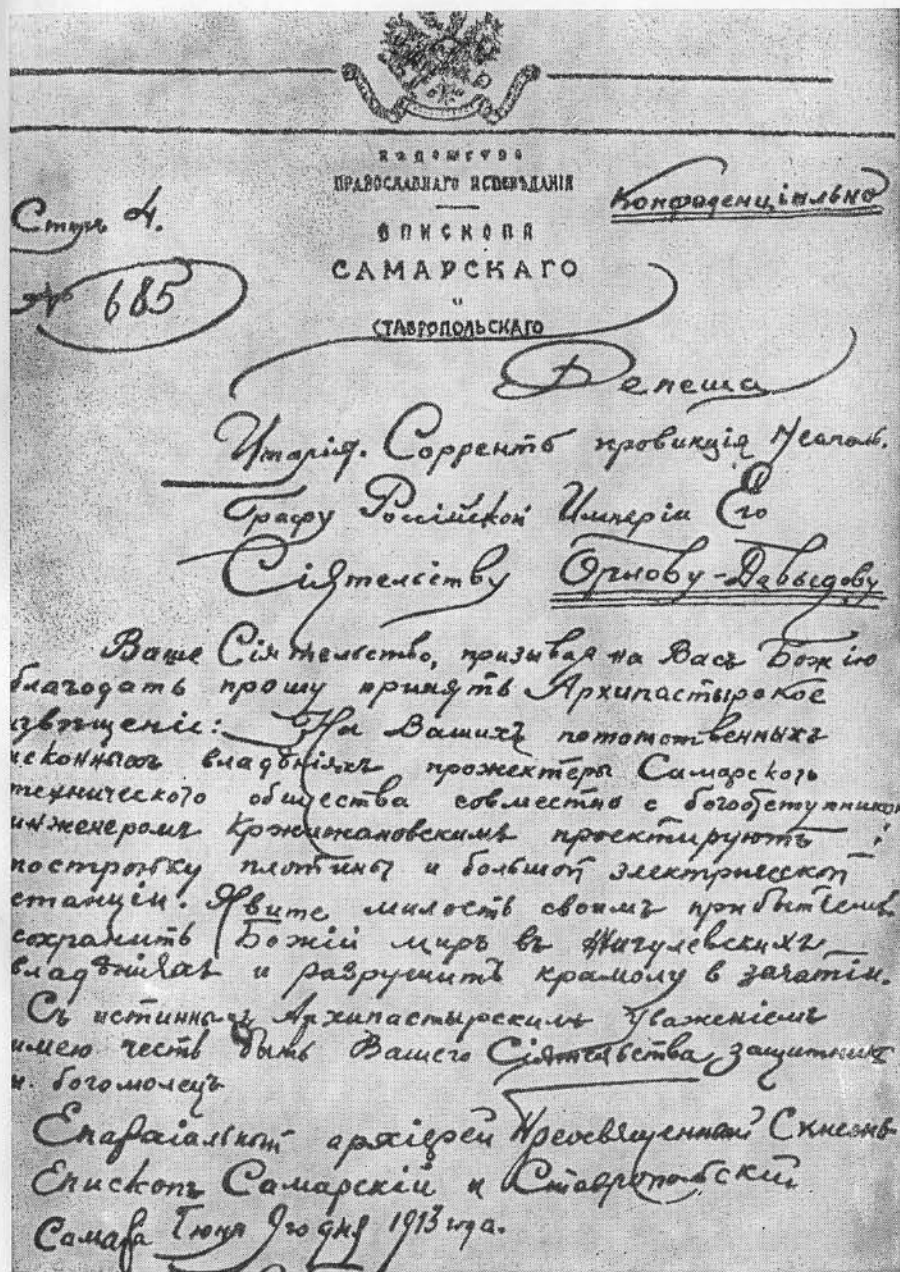 ВѢДОМСТВО
ПРАВОСЛАВНАГО ИСПОВѢДАНІЯ
Конфиденціально
ЕПИСКОПА
САМАРСКАГО
и
СТАВРОПОЛЬСКАГО
№ 685
Депеша
Италія. Соррентъ провинція Неаполь.
Графу Россійской Имперіи Его
Сіятельству Орлову-Давыдову
Ваше Сіятельство, призывая на Васъ Божію
благодать прошу принять Архипастырское
извѣщеніе: На Вашихъ потомственныхъ
исконныхъ владѣніяхъ прожектеры Самарского
технического общества совместно с богоотступником
инженеромъ Кржижановскимъ проектируютъ
постройку плотины и большой электрической
станціи. Явите милость своимъ прибытіемъ
сохранить Божій миръ въ Жигулевскихъ
владѣніяхъ и разрушить крамолу в зачатіи.
Съ истиннымъ Архипастырскимъ уваженіемъ
имею честь быть Вашего Сіятельства защитникъ
и богомолецъ
Епархіальный архіерей Преосвященный Симеонъ
Епископъ Самарскій и Ставропольскій
Самара Іюня 9го дня 1913 года.